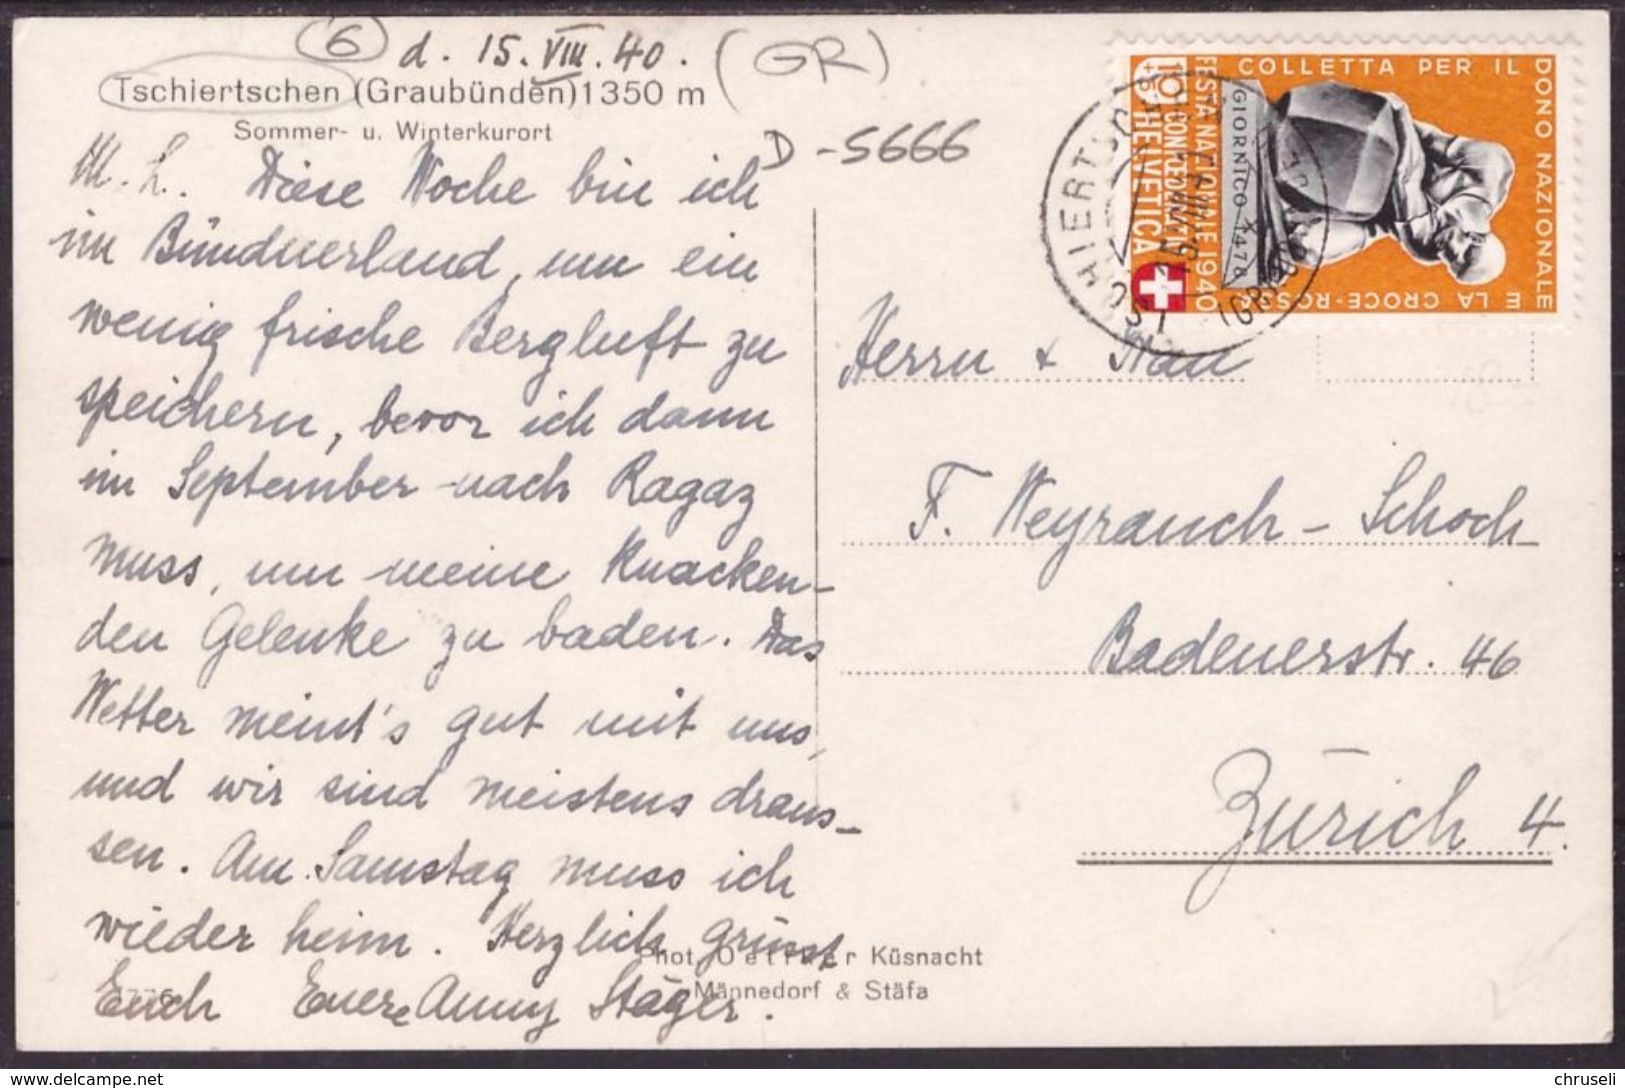 (6) d. 15. VIII. 40. (GR)
Tschiertschen (Graubünden) 1350 m
Sommer- u. Winterkurort
D-5666
M. L. Diese Woche bin ich
im Bündnerland, um ein
wenig frische Bergluft zu
speichern, bevor ich dann
im September nach Ragaz
muss, um meine knacken-
den Gelenke zu baden. Das
Wetter meint's gut mit uns,
und wir sind meistens draus-
sen. Am Samstag muss ich
wieder heim. Herzlich grüsst
Euch Euere Anny Stäger.
Phot. Oetiker Küsnacht
Männedorf & Stäfa
COLLETTA PER IL DONO NAZIONALE E LA CROCE-ROSSA
FESTA NAZIONALE 1940
HELVETIA
GIORNICO 1478
TSCHIERTSCHEN
15.VIII.40
(GR)
Herrn & Frau
F. Weyrauch-Schoch
Badenerstr. 46
Zürich 4.
www.delcampe.net
chruseli